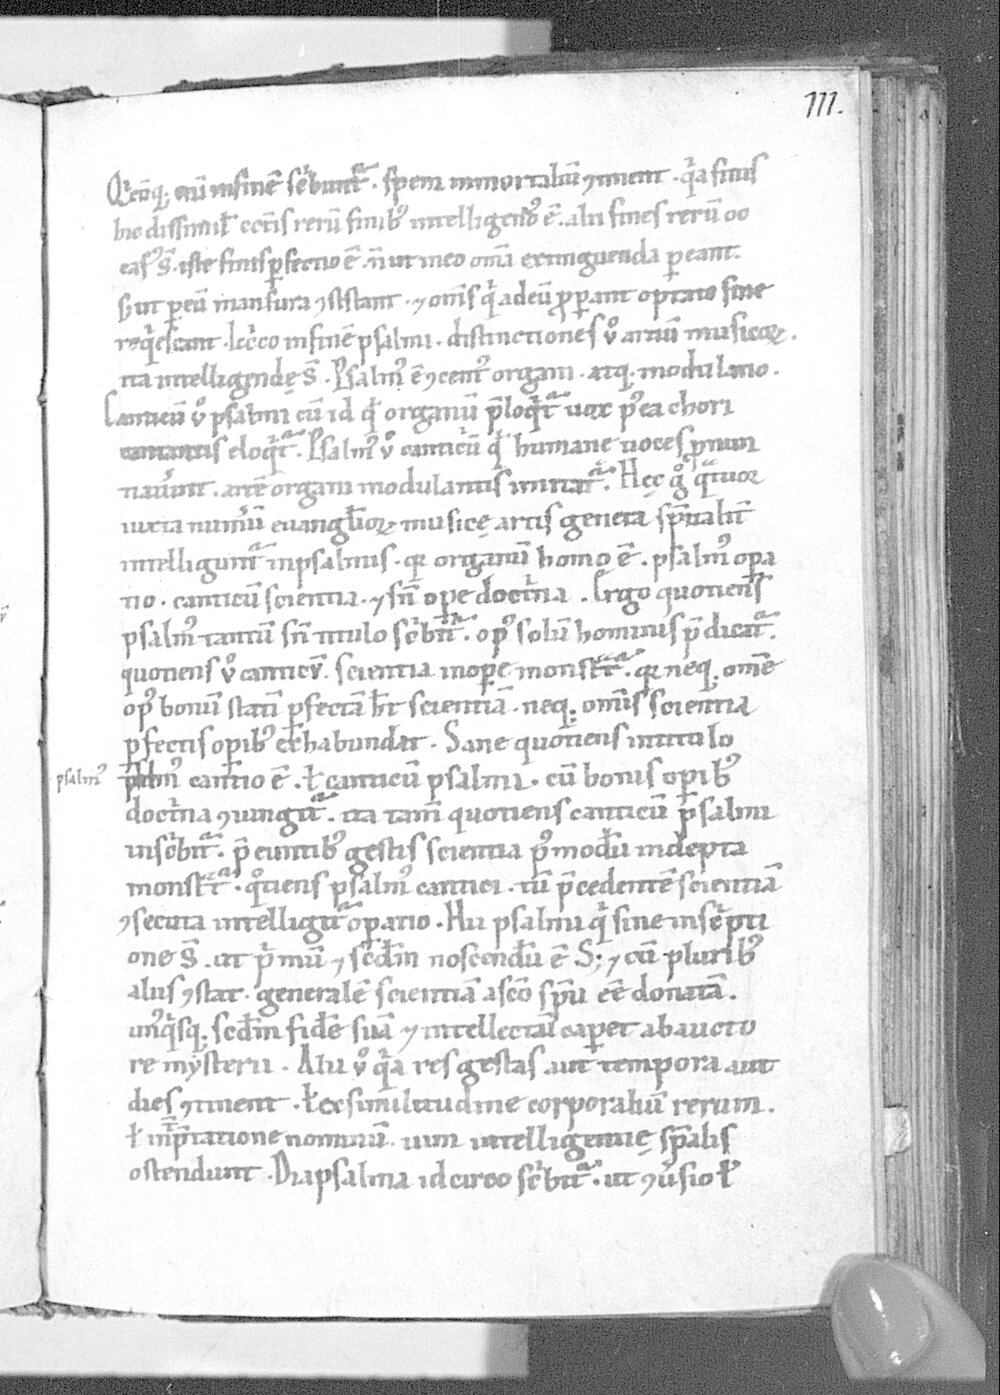 111.
Qͥcūq; aū infinē sc̄bunt᷑. spem inmortaliū ꝯtinent. qͥa finis
hic dissimil̄ cet̄is rerū finibꝰ intelligendꝰ ē. alii fines rerū oc
easꝰ s̄. iste finis ꝑfectio ē. n̄ ut in eo om̄ia extinguenda pereant.
s; ut ꝑ eū mansura ꝯsistant. ⁊ om̄is qͥ ad eū ꝓꝑant optato fine
reqͥescant. Ic̄co in finē psalmi. distinctiones ꝟo artiū musicoꝝ.
ita intelligendę s̄. Psalmꝰ ē ꝯcentꝰ organi. atq; modulatio.
Canticū ꝟo psalmi cū id qd̄ organū p̄loqͥt᷑ uox pꝰea chori
cantantis eloqͥt᷑. Psalmꝰ ꝟo canticū qd̄ humane uoces p̄nun
nauerint. artē organi modulantis imitat᷑. Hęc gͦ qͣtuor
iuxta numerū euangelioꝝ musicę artis genera sp̄ualit̄
intelligunt᷑ in psalmis. qꝛ organū homo ē. psalmꝰ oꝑa
tio. canticū scientia. ⁊ sn̄ oꝑe doctͥna. Ergo quotiens
psalmꝰ tantū sn̄ titulo sc̄bit᷑. opꝰ solū hominis p̄dicat᷑.
quotiens ꝟo canticū. scientia in oꝑe monstrat᷑. qꝛ neq; omē
opꝰ bonū stati ꝑfectā ht̄ scientiā. neq; om̄is scientia
ꝑfectis oꝑibꝰ exhabundat. Sane quotiens in titulo
psalmꝰ
psalmꝰ cantico ē. ł canticū psalmi. cū bonis oꝑibꝰ
doctͥna ꝯiungit᷑. ita tam̄ quotiens canticū psalmi
insc̄bit᷑. p̄euntibꝰ gestis scientia pꝰmodū indepta
monstrat᷑. qͦtiens psalmꝰ cantici. tū p̄cedentē scientiā
ꝯsecuta intelligit᷑ oꝑatio. Hii psalmi qͥ sine insc̄pti
one s̄. ut pͥmū ⁊ sc̄dm noscendū ē S; ⁊ cū pluribꝰ
aliis ꝯstat. generalē scientiā a sc̄o sp̄u eē donatā.
unꝰqͥsq; sc̄dm fidē suā ⁊ intellectū caperet ab aucto
re mysterii. Alii ꝟo qͥa res gestas. aut tempora aut
dies ꝯtinent. ł ex similitudine corporaliū rerum.
ł int̄p̄tatione nominū. uim intelligentię sp̄alis
ostendunt. Diapsalma idcirco sc̄bit᷑. ut ꝯꝟsio ł